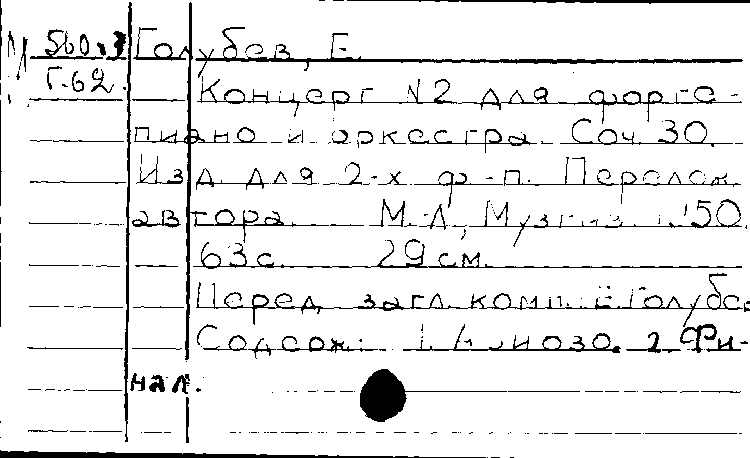 М 560.3 Голубев, Е.
Г.62. Концерт №2 для форте-
пиано и оркестра. Соч. 30.
Изд. для 2-х ф.-п. Перелож.
автора. М.-Л., Музгиз, 1950.
63с. 29см.
Перед загл. комп.: Е. Голубе
Содерж: 1. 2. Фи-
нал.